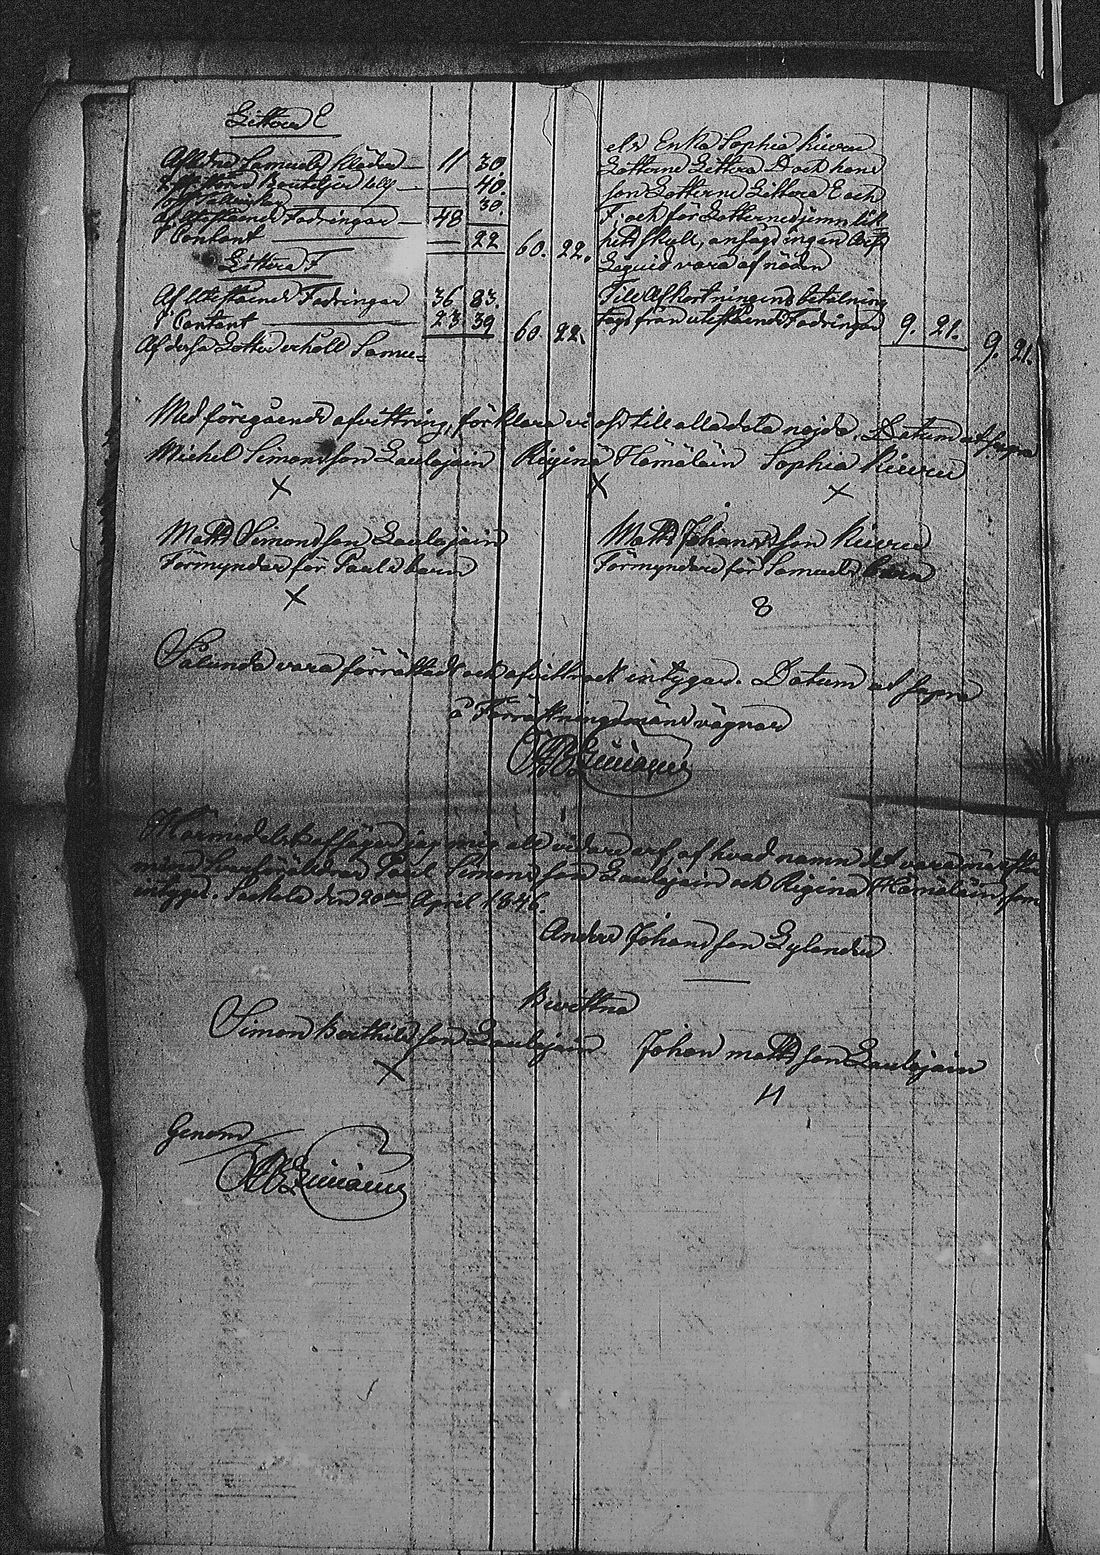 Littera E
Afledne Samuels kläder 11 30.
40.
30.
Af Utestående Fodringar 48
Contant 22 60. 22.
Littera F
Af Utestående Fodringar 36 83.
Contant 23 39 60. 22.
Af dessa Lotter erhöll Samu=
els Enka Sophia Kiuru
Lotterne Littera D och hans
son Lotterne Littera E och
F. och för Lotternes jemnlik
hets skull, ansågs ingen
Liquid vara af nöden
Till Afkortningens betalning
togs från utestående Fodringar 9. 21. 9. 21.
Med föregående afvittring, förklara vi oss till alla delar nöjda. Datum ut supra
Michel Simonsson Laulajain Regina Hämäläin Sophia Kiuru
X X X
Matts Simonsson Laulajain Matts Johansson Kiuru
Förmyndar för Pauls barn Förmyndare för Samuels barn
X 8
Sålunda vara förrättadt och afvittradt intygar. Datum ut supra
å Förrättningsmäns vägnar
Härmedelst afsäger jag mig all vidare arf, af hvad namn det vara må efter
mina Svärföräldrar Paul Simonsson Laulajain och Regina Hämäläin, som
intygas. Sakkola den 20de April 1846.
Anders Johansson Gylander
Bevittna
Simon Bertilsson Laulajain Johan Mattsson Laulajain
X H
Genom